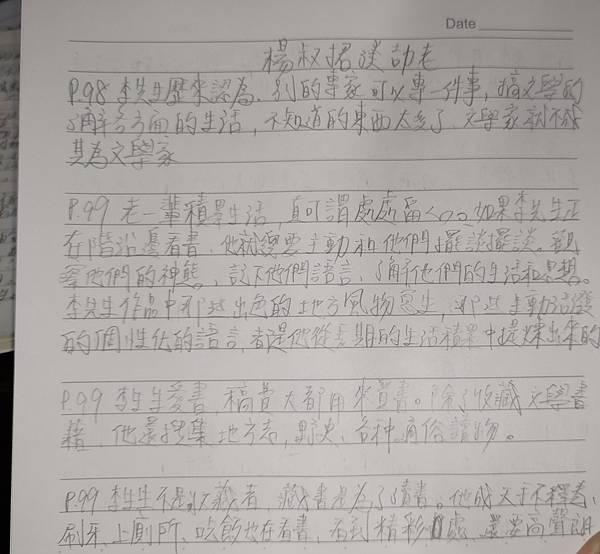 Date
楊叔捃談劼老
P.98 李先生歷來認為，別的專家可以專一件事，搞文學的
了解各方面的生活，不知道的東西太多了，文學家就不成
其為文學家
P.99 老一輩積累生活，真可謂處處留心。如果李先生正
在階沿邊看書，他就要主動和他們擺談擺談，觀
察他們的神態，記下他們語言，了解他們的生活和思想。
李先生作品中那些出色的地方風物寫生，那些生動活潑
的個性化的語言，都是他從長期的生活積累中提煉出來的
P.99 李先生愛書，稿費大都用來買書。除了收藏文學書
籍，他還搜集地方志，野史、各种通俗讀物。
P.99 李先生不是收藏者，藏書是為了讀書。他成天手不釋卷，
刷牙、上廁所、吃飯也在看書，看到精彩處，還要高聲朗